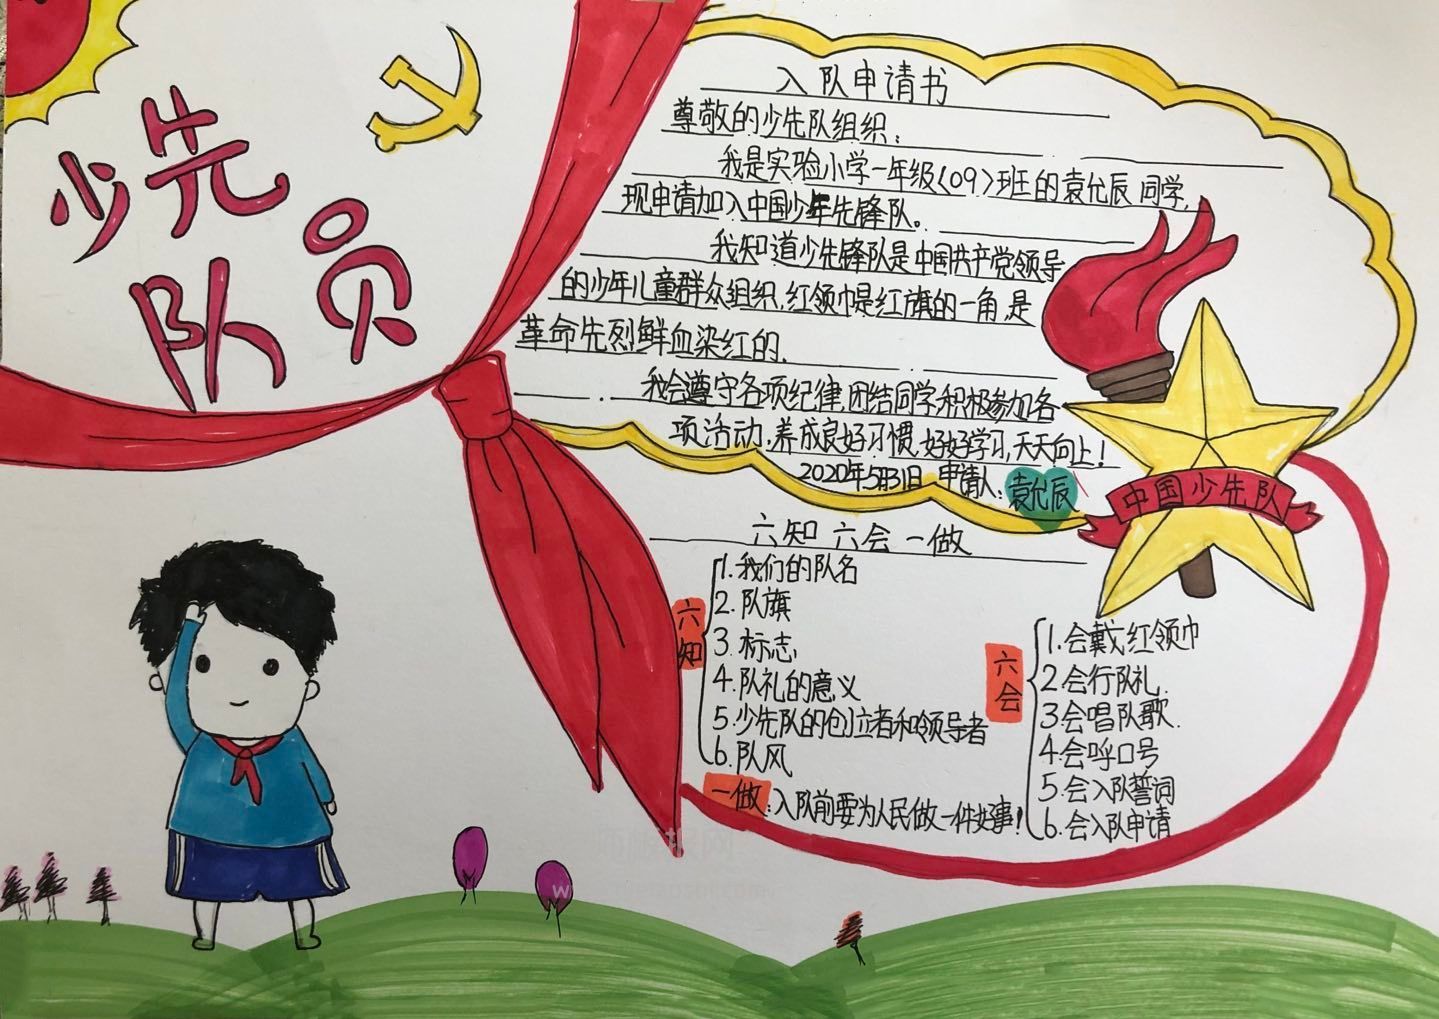 少先
队员
入队申请书
尊敬的少先队组织：
我是实验小学一年级〈09〉班的袁允辰同学,
现申请加入中国少年先锋队。
我知道少先锋队是中国共产党领导
的少年儿童群众组织,红领巾是红旗的一角,是
革命先烈鲜血染红的.
我会遵守各项纪律,团结同学积极参加各
项活动.养成良好习惯,好好学习,天天向上!
2020年5月31日 申请人:袁允辰
中国少先队
六知 六会 一做
六知
1.我们的队名
2.队旗
3.标志
4.队礼的意义
5.少先队的创立者和领导者
6.队风
六会
1.会戴红领巾
2.会行队礼.
3.会唱队歌.
4.会呼口号
5.会入队誓词
6.会入队申请
一做:入队前要为人民做一件好事!